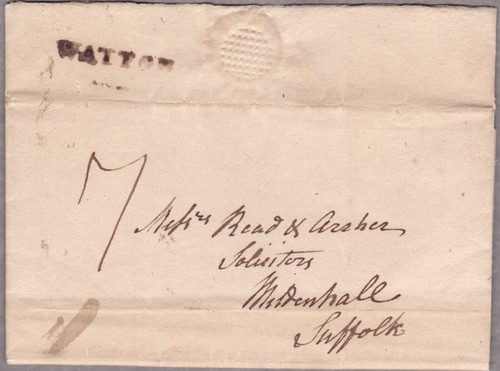 WATTON
7
Messrs Read & Archer
Solicitors
Mildenhall
Suffolk